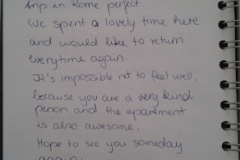 trip in Rome perfect.
We spent a lovely time here
and would like to return
everytime again.
It's impossible not to feel well,
because you are a very kind
person and the apartment
is also awesome.
Hope to see you someday
again